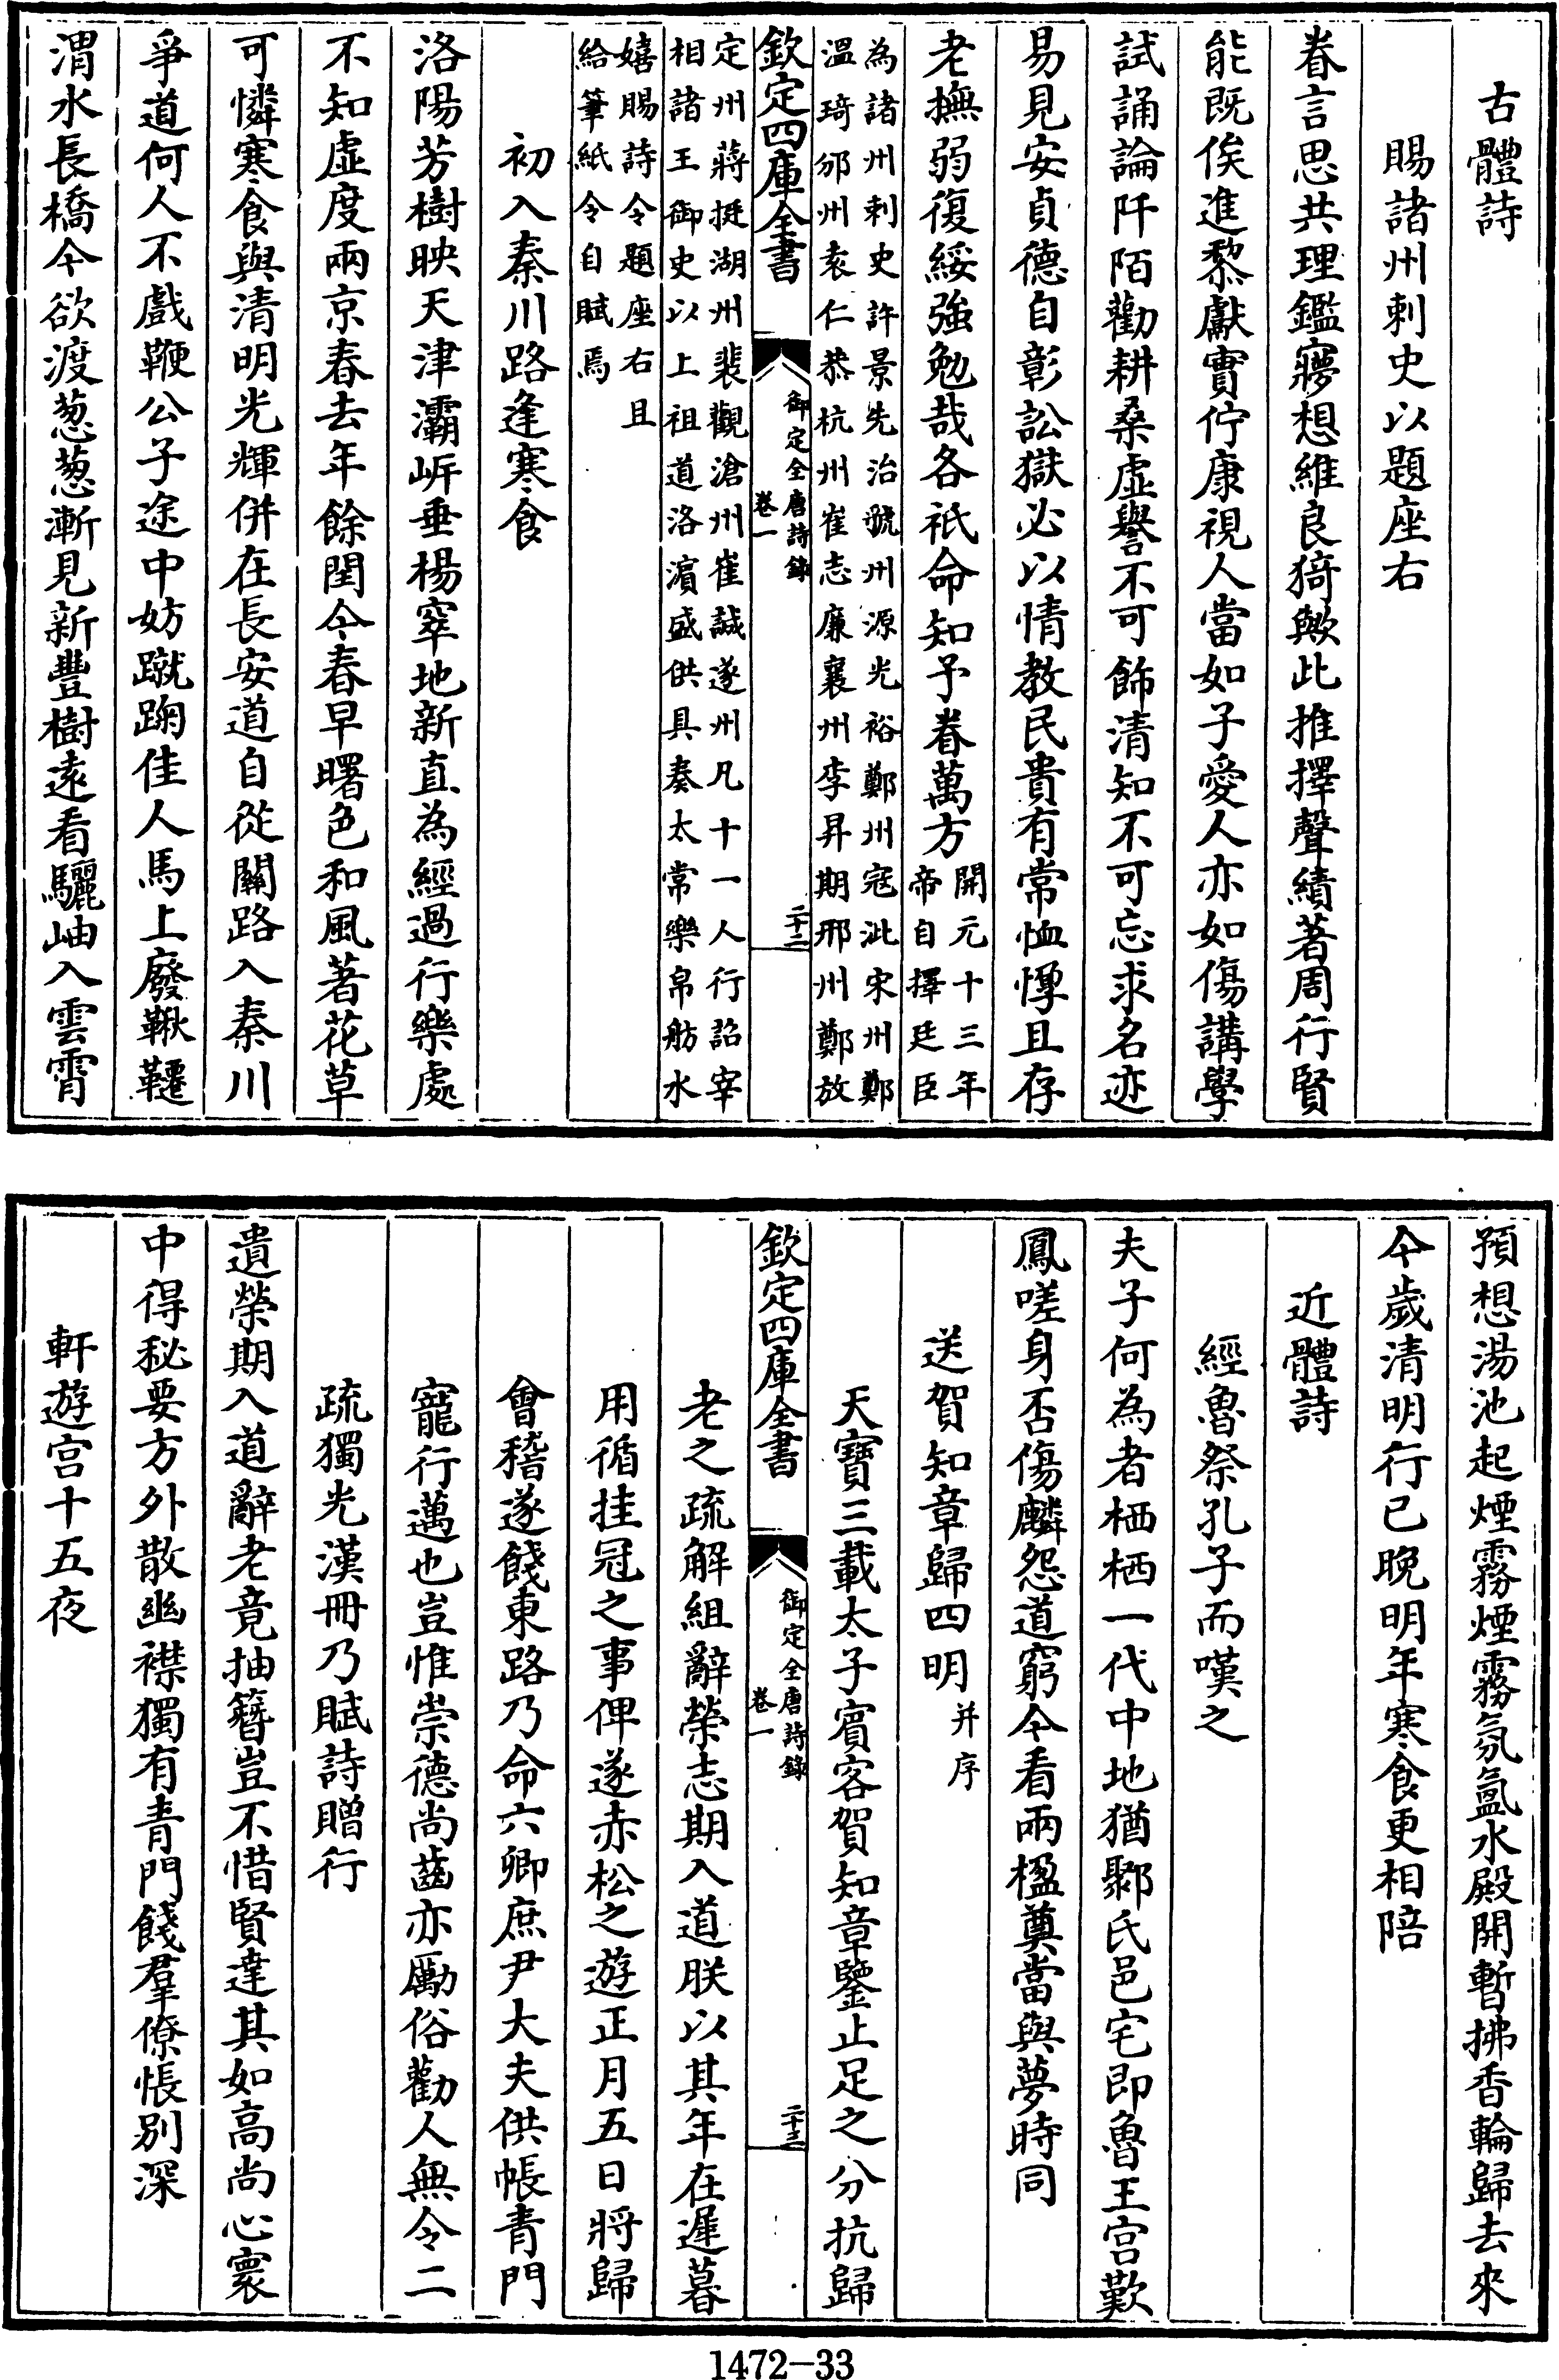 古體詩
賜諸州刺史以題座右
眷言思共理鑑寢想維良猗歟此推擇聲績著周行賢
能既俟進黎獻實佇康視人當如子愛人亦如傷講學
試誦論阡陌勸耕桑虛譽不可飾清知不可忘求名迹
易見安貞德自彰訟獄必以情教民貴有常恤惸且存
老撫弱復綏強勉哉各祗命知予眷萬方開元十三年
帝自擇廷臣
為諸州刺史許景先治虢州源光裕鄭州寇泚宋州鄭
溫琦邠州袁仁恭杭州崔志廉襄州李昇期邢州鄭放
欽定四庫全書
御定全唐詩錄
卷一
二十二
定州蔣挺湖州裴觀滄州崔誠遂州凡十一人行詔宰
相諸王御史以上祖道洛濱盛供具奏太常樂帛舫水
嬉賜詩令題座右且
給筆紙令自賦焉
初入秦川路逢寒食
洛陽芳樹映天津灞岍垂楊窣地新直為經過行樂處
不知虛度兩京春去年餘閏今春早曙色和風著花草
可憐寒食與清明光輝併在長安道自從關路入秦川
爭道何人不戲鞭公子途中妨蹴踘佳人馬上廢鞦韆
渭水長橋今欲渡葱葱漸見新豐樹遠看驪岫入雲霄
預想湯池起煙霧煙霧氛氳水殿開暫拂香輪歸去來
今歲清明行已晚明年寒食更相陪
近體詩
經魯祭孔子而嘆之
夫子何為者栖栖一代中地猶鄹氏邑宅即魯王宫歎
鳳嗟身否傷麟怨道窮今看兩楹奠當與夢時同
送賀知章歸四明并序
天寶三載太子賓客賀知章鑒止足之分抗歸
欽定四庫全書
御定全唐詩錄
卷一
二十三
老之疏解組辭榮志期入道朕以其年在遲暮
用循挂冠之事俾遂赤松之遊正月五日將歸
會稽遂餞東路乃命六卿庶尹大夫供帳青門
寵行邁也豈惟崇德尚齒亦勵俗勸人無令二
疏獨光漢冊乃賦詩贈行
遺榮期入道辭老竟抽簪豈不惜賢達其如高尚心寰
中得秘要方外散幽襟獨有青門餞羣僚悵别深
軒遊宫十五夜
1472-33